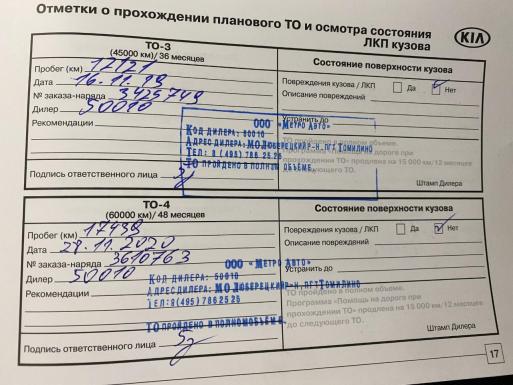 Отметки о прохождении планового ТО и осмотра состояния
ЛКП кузова
KIA
ТО-3
(45000 км)/ 36 месяцев
Состояние поверхности кузова
Пробег (км) 12121
Дата 16.11.19
№ заказа-наряда 3425749
Дилер 50010
Рекомендации
Повреждения кузова / ЛКП Да Нет
Описание повреждений
Устранить до
ООО "Метро Авто"
Код дилера: 50010
Адрес дилера: МО Люберецкий р-н, пгт Томилино
Тел: 8 (495) 786 25 26
ТО пройдено в полном объеме
ТО пройдено в полном объеме.
Программа «Помощь на дороге при
прохождении ТО» продлена на 15 000 км/12 месяцев
до следующего ТО.
Подпись ответственного лица
Штамп Дилера
ТО-4
(60000 км)/ 48 месяцев
Состояние поверхности кузова
Пробег (км) 17439
Дата 27.11.2020
№ заказа-наряда 3610763
Дилер 50010
Рекомендации
Повреждения кузова / ЛКП Да Нет
Описание повреждений
Устранить до
ООО "Метро Авто"
Код дилера: 50010
Адрес дилера: МО Люберецкий р-н, пгт Томилино
Тел: 8 (495) 786 25 26
ТО пройдено в полном объеме.
ТО пройдено в полном объеме.
Программа «Помощь на дороге при
прохождении ТО» продлена на 15 000 км/12 месяцев
до следующего ТО.
Подпись ответственного лица
Штамп Дилера
17